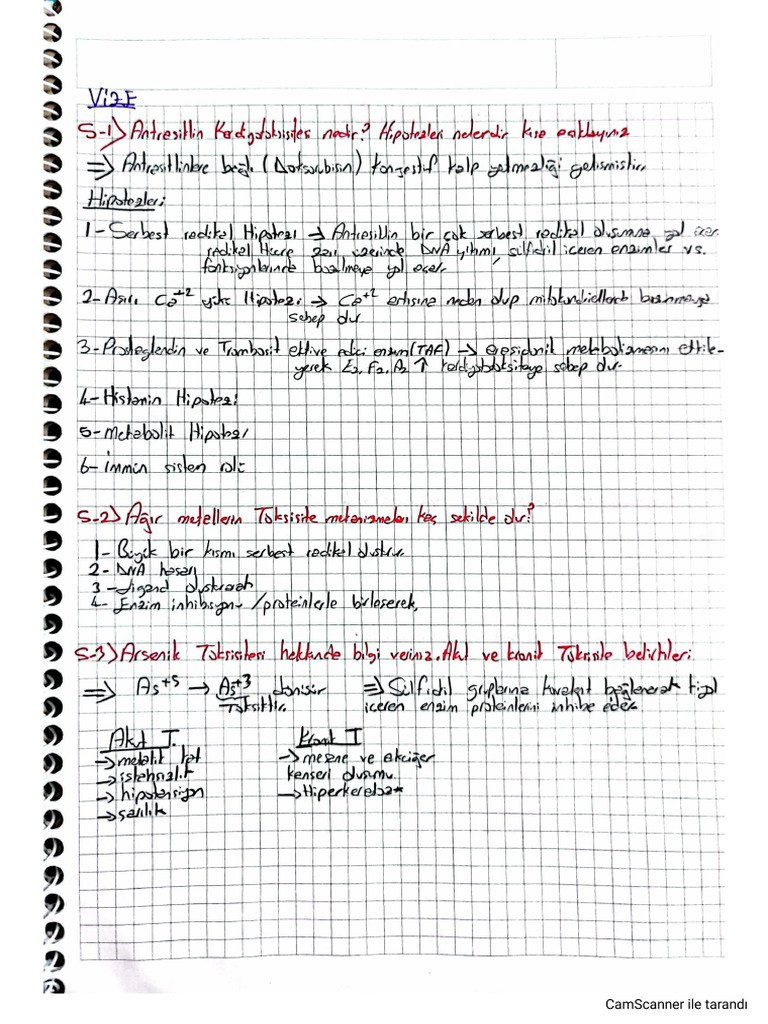 VizE
S-1) Antresiklin Kardiyotoksisites nedir? Hipotezleri nelerdir kısa açıklayınız
⇒ Antresiklinlere bağlı (Doksorubisin) konjestif kalp yetmezliği gelişmiştir.
Hipotezler;
1- Serbest radikal Hipotezi → Antresiklin bir çok serbest radikal oluşumuna yol açar.
radikal Hücre zarı üzerinde DNA yıkımı, sülfidil içeren enzimler vs.
fonksiyonlarında bozulmaya yol açar.
2- Aşırı Ca+2 yükü Hipotezi → Ca+2 artışına neden olup mitokondriellerde
sebep olur
3- Prostaglandin ve Trombosit aktive edici enzim (TAF) → araşidonik metabolizmasını etkile-
yerek E2, F2, A2 ↑ kardiyotoksisiteye sebep olur.
4- Histamin Hipotezi
5- metabolit Hipotezi
6- immün sistem rolü
S-2) Ağır metallerin Toksisite mekanizmaları kaç şekilde olur?
1- Büyük bir kısmı serbest radikal oluşturur
2- DNA hasarı
3- Ligand oluşturarak
4- Enzim inhibisyonu /proteinlerle birleşerek,
S-3) Arsenik Toksisitesi hakkında bilgi veriniz. Akut ve kronik Toksisite belirtileri
⇒ As+5 → As+3 dönüşür ⇒ Sülfidil gruplarına kovalent bağlanarak tiyol
Toksiktir. içeren enzim proteinlerini inhibe eder
Akut T. Kronik T
→ metalik tat → mesane ve akciğer
→ iştahsızlık kanseri oluşumu.
→ hipotansiyon → Hiperkeratoz*
→ sarılık
CamScanner ile tarandı